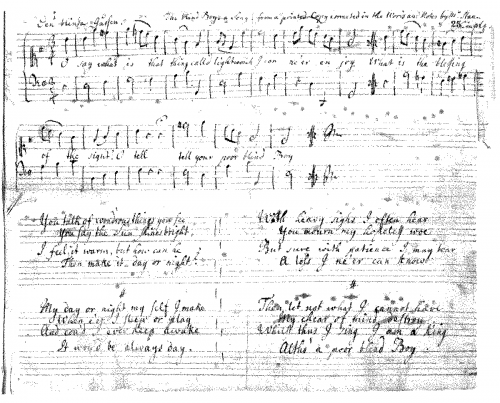 The Blind Boy a Song from a printed Copy corrected in the Words and Notes by Mr Stan
O say what is that thing call'd light which I can ne'er en joy What is the blessing
of the sight O tell tell your poor blind Boy
You talk of wond'rous things you see
You say the Sun shines bright
I feel it warm, but how can he
Then make it day or night?
My day or night my self I make
When e'er I sleep or play
And cou'd I ever keep awake
It wou'd be always day.
With heavy sighs I often hear
You mourn my hopeless woe
But sure with patience I may bear
A loss I ne'er can know
Then let not what I cannot have
My chear of mind destroy
Whilst thus I sing I am a King
Altho' a poor blind Boy